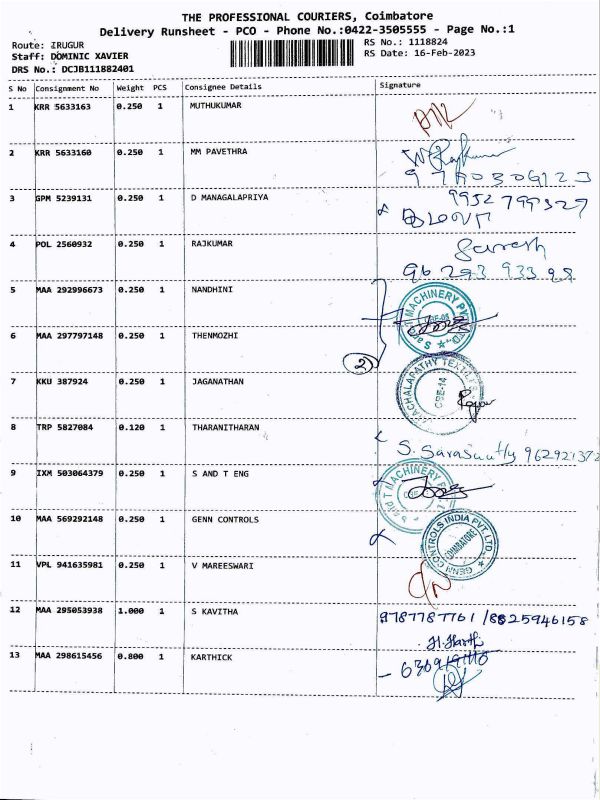 THE PROFESSIONAL COURIERS, Coimbatore
Delivery Runsheet - PCO - Phone No.:0422-3505555 - Page No.:1
Route: IRUGUR
RS No.: 1118824
Staff: DOMINIC XAVIER
RS Date: 16-Feb-2023
DRS No.: DCJB111882401
S No Consignment No Weight PCS Consignee Details Signature
1 KRR 5633163 0.250 1 MUTHUKUMAR
2 KRR 5633160 0.250 1 MM PAVETHRA
3 GPM 5239131 0.250 1 D MANAGALAPRIYA
9952799327
4 POL 2560932 0.250 1 RAJKUMAR
Suresh
96 293 933 98
5 MAA 292996673 0.250 1 NANDHINI
S and T MACHINERY PVT. LTD.
6 MAA 297797148 0.250 1 THENMOZHI
2
7 KKU 387924 0.250 1 JAGANATHAN
CBE-14
8 TRP 5827084 0.120 1 THARANITHARAN
S. Saraswathy 962921372
9 IXM 503064379 0.250 1 S AND T ENG
S and T MACHINERY P
10 MAA 569292148 0.250 1 GENN CONTROLS
GENN CONTROLS INDIA PVT. LTD.,
COIMBATORE
11 VPL 941635981 0.250 1 V MAREESWARI
12 MAA 295053938 1.000 1 S KAVITHA
9787787761 / 8825946158
13 MAA 298615456 0.800 1 KARTHICK